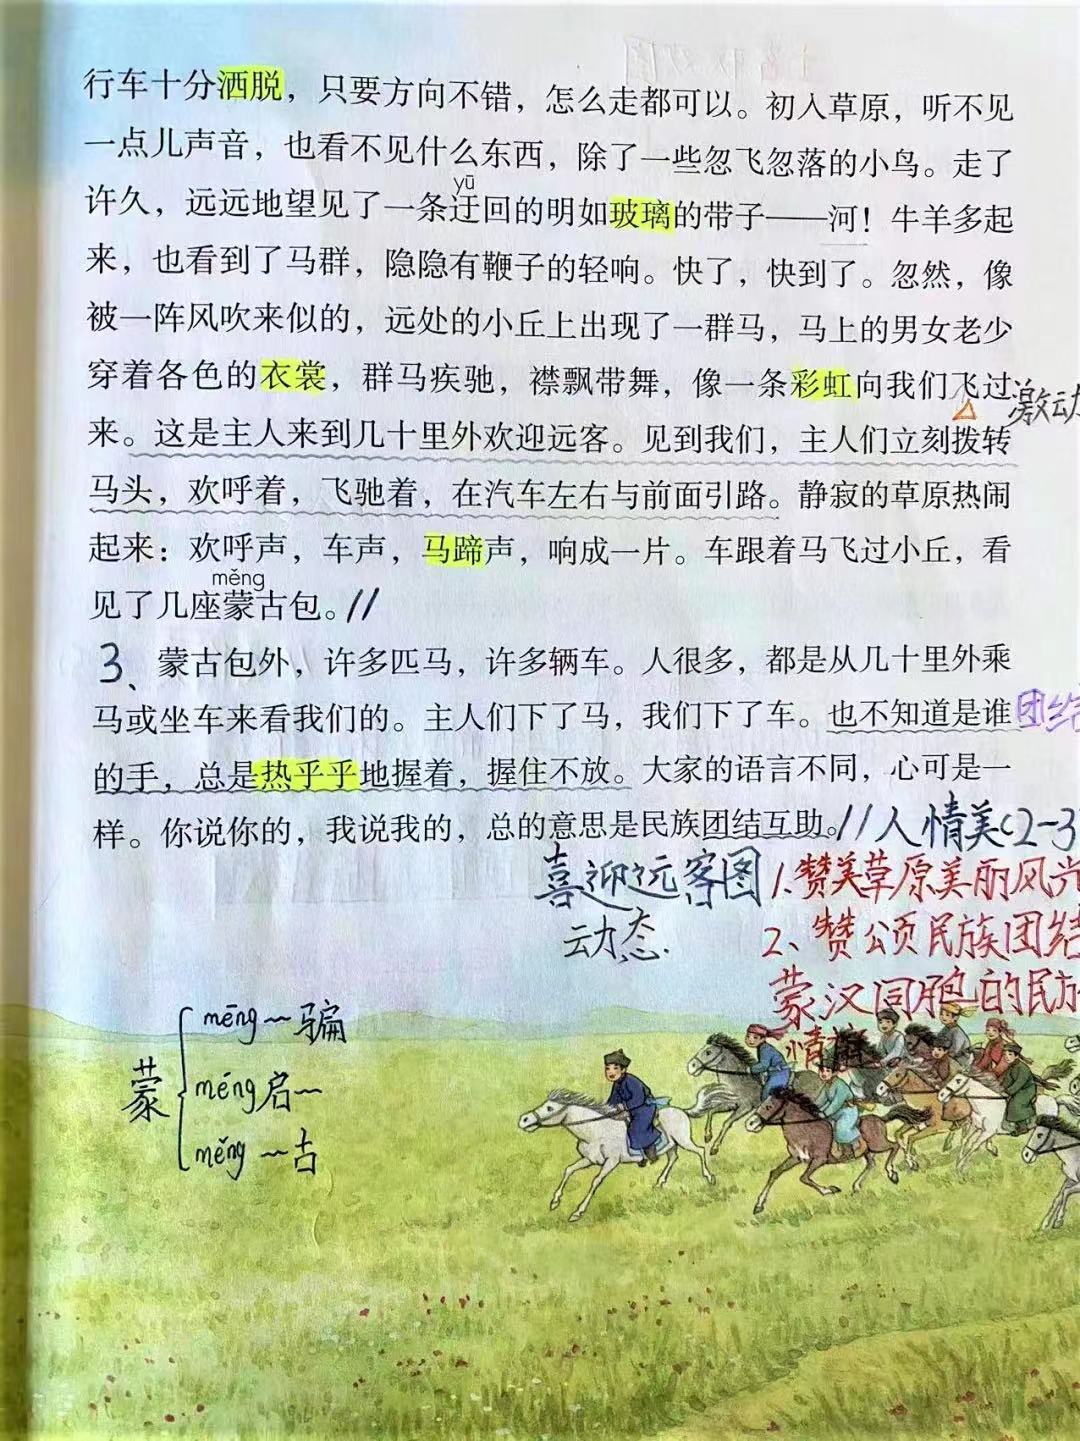 行车十分洒脱，只要方向不错，怎么走都可以。初入草原，听不见
一点儿声音，也看不见什么东西，除了一些忽飞忽落的小鸟。走了
yū
许久，远远地望见了一条迂回的明如玻璃的带子——河！牛羊多起
来，也看到了马群，隐隐有鞭子的轻响。快了，快到了。忽然，像
被一阵风吹来似的，远处的小丘上出现了一群马，马上的男女老少
穿着各色的衣裳，群马疾驰，襟飘带舞，像一条彩虹向我们飞过
激动
来。这是主人来到几十里外欢迎远客。见到我们，主人们立刻拨转
马头，欢呼着，飞驰着，在汽车左右与前面引路。静寂的草原热闹
起来：欢呼声，车声，马蹄声，响成一片。车跟着马飞过小丘，看
měng
见了几座蒙古包。//
3、蒙古包外，许多匹马，许多辆车。人很多，都是从几十里外乘
马或坐车来看我们的。主人们下了马，我们下了车。也不知道是谁
团结
的手，总是热乎乎地握着，握住不放。大家的语言不同，心可是一
样。你说你的，我说我的，总的意思是民族团结互助。//人情美(2-3
喜迎远客图
动态.
1、赞美草原美丽风光
2、赞颂民族团结
蒙汉同胞的民族
情
蒙
mēng~骗
méng启~
měng~古